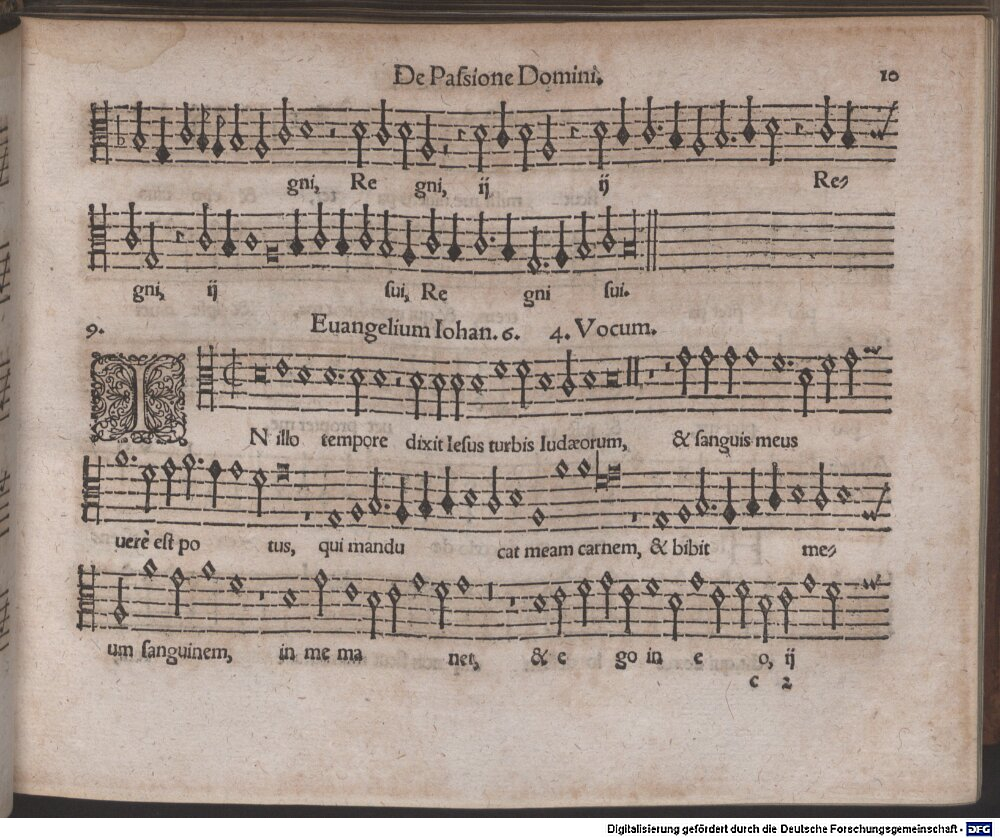 De Paſsione Domini. 10
gni, Re gni, ij ij Re⸗
gni, ij ſui, Re gni ſui.
9. Euangelium Iohan. 6. 4. Vocum.
IN illo tempore dixit Ieſus turbis Iudæorum, & ſanguis meus
uerè eſt po tus, qui mandu cat meam carnem, & bibit me⸗
um ſanguinem, in me ma net, & e go in e o, ij
c 2
Digitalisierung gefördert durch die Deutsche Forschungsgemeinschaft - DFG